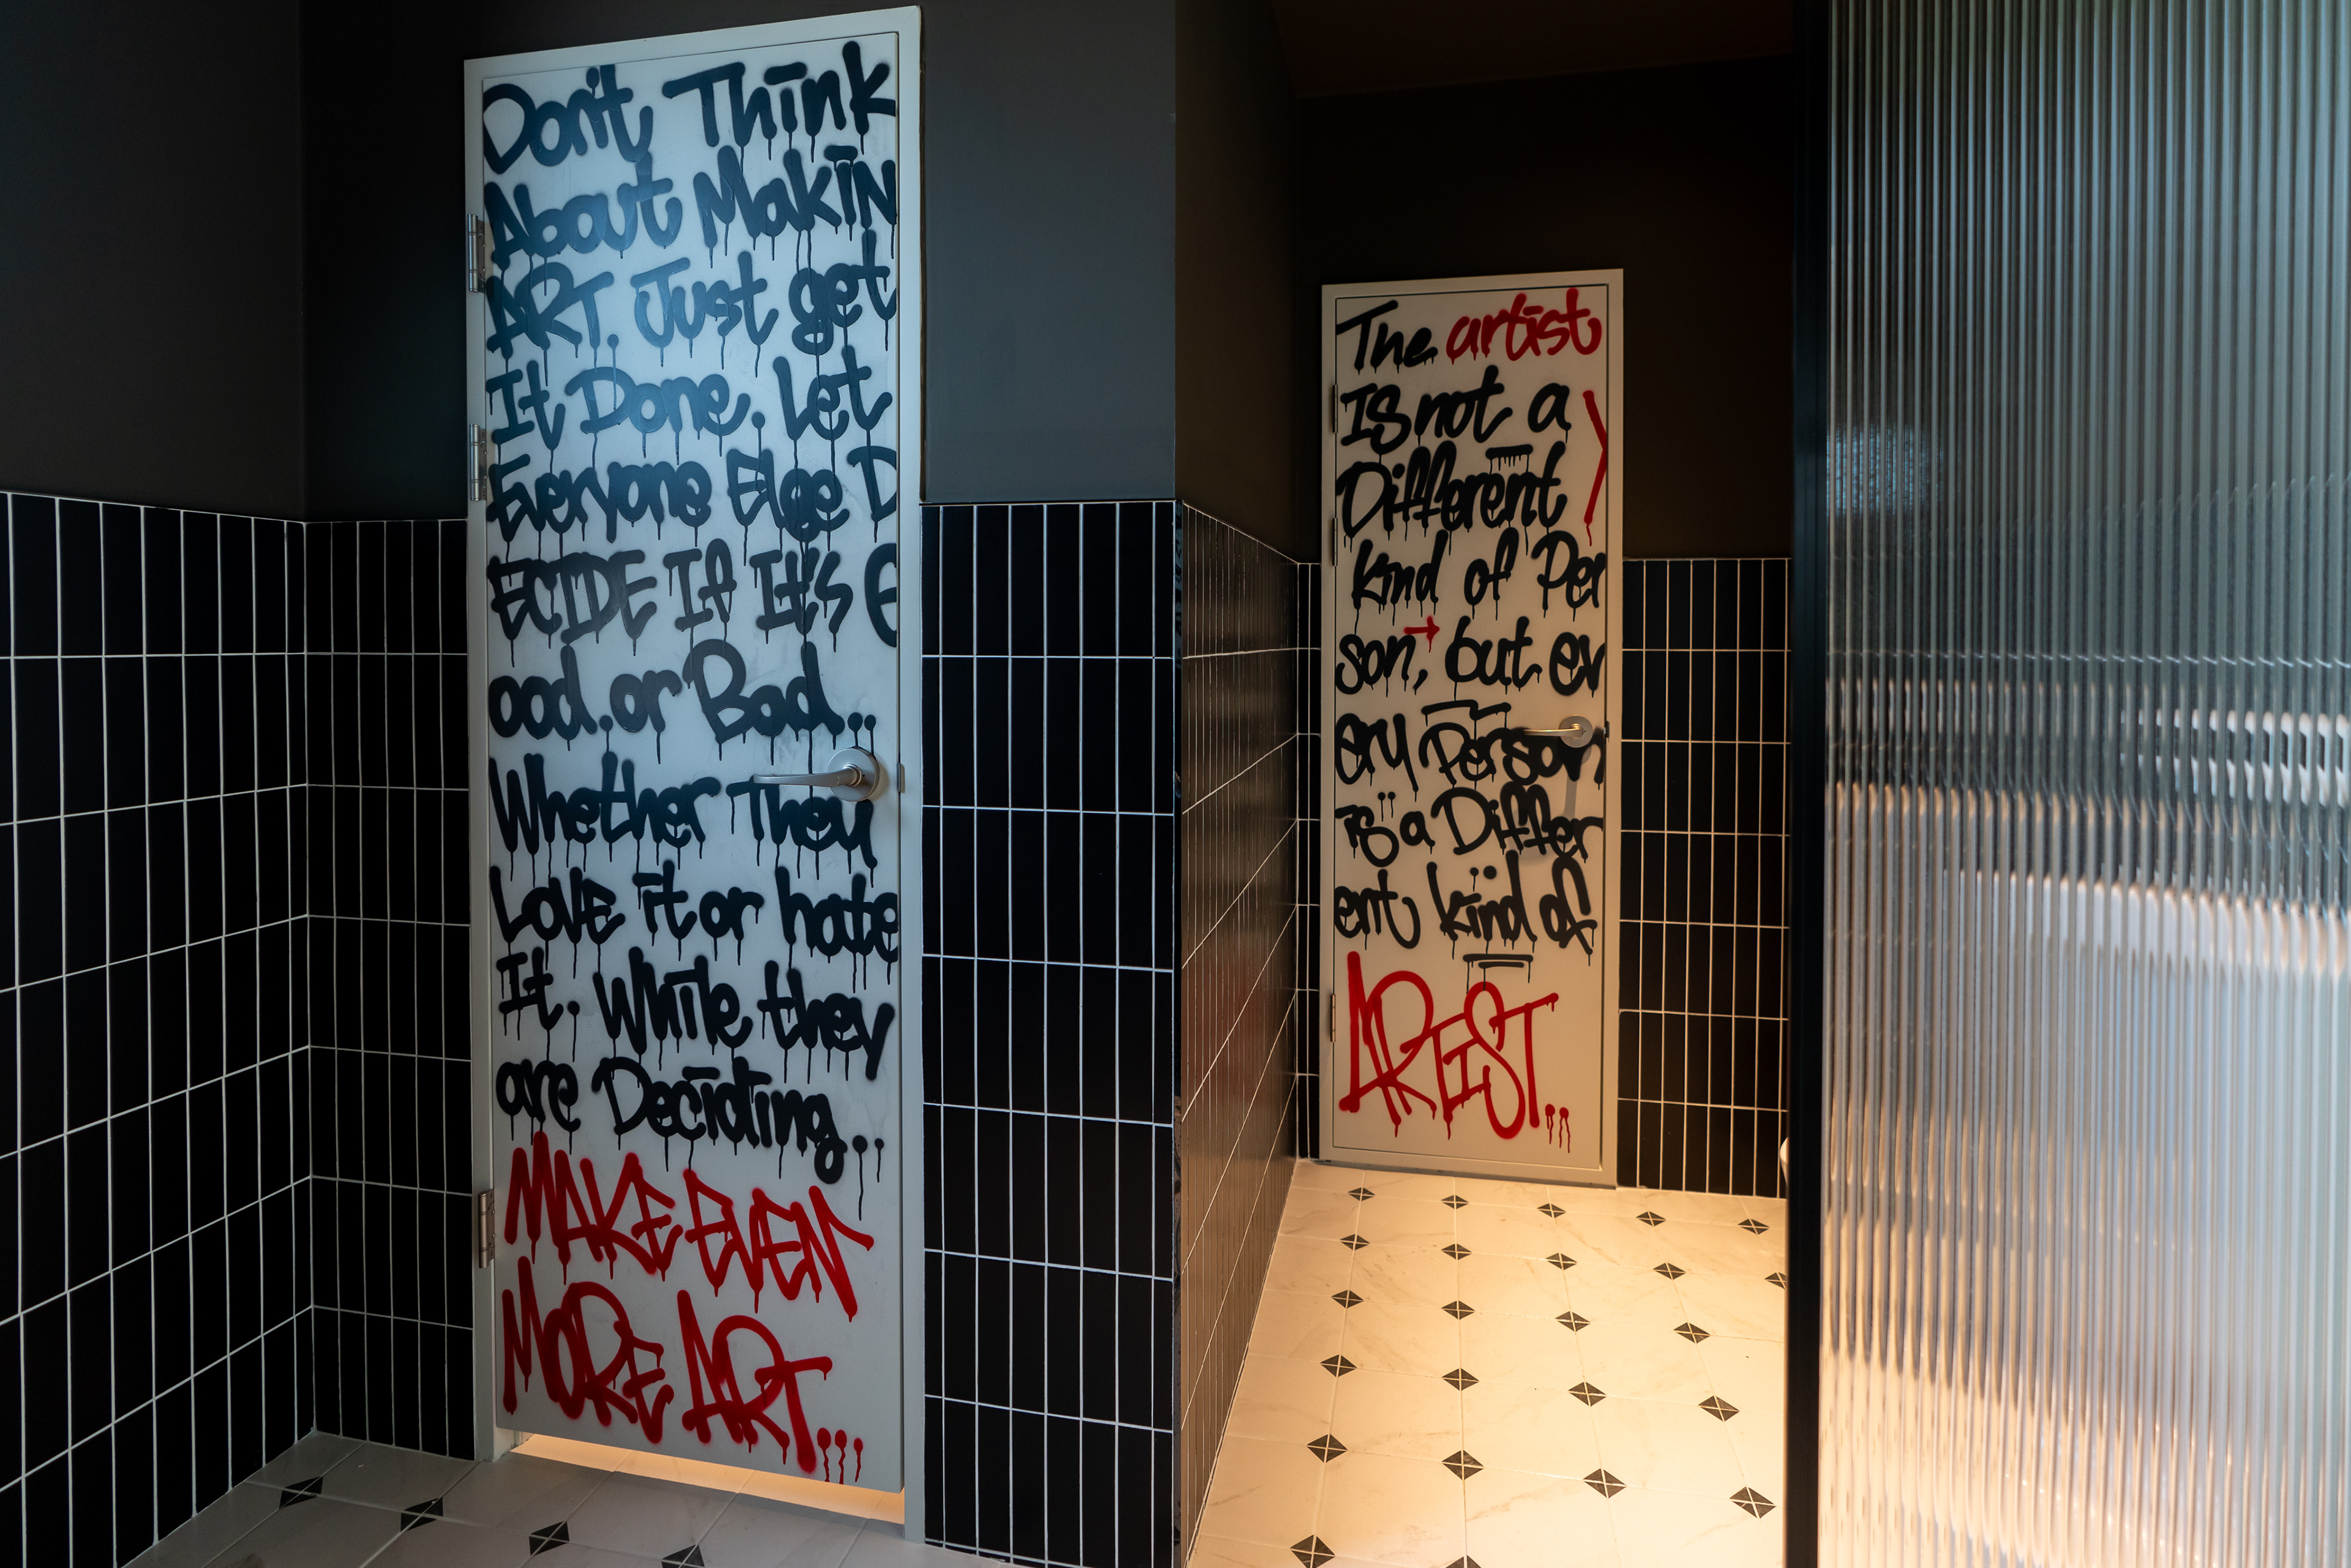 Don't Think
About Makin
ART. Just get
It Done. Let
Everyone Else D
ECIDE If It's G
ood. or Bad..
Whether They
LOVE it or hate
It. While they
are Deciding..
MAKE EVEN
MORE ART...
The artist
IS not a
Different
kind of Per
son, but ev
ery Person
is a Differ
ent kind of
ARTIST..